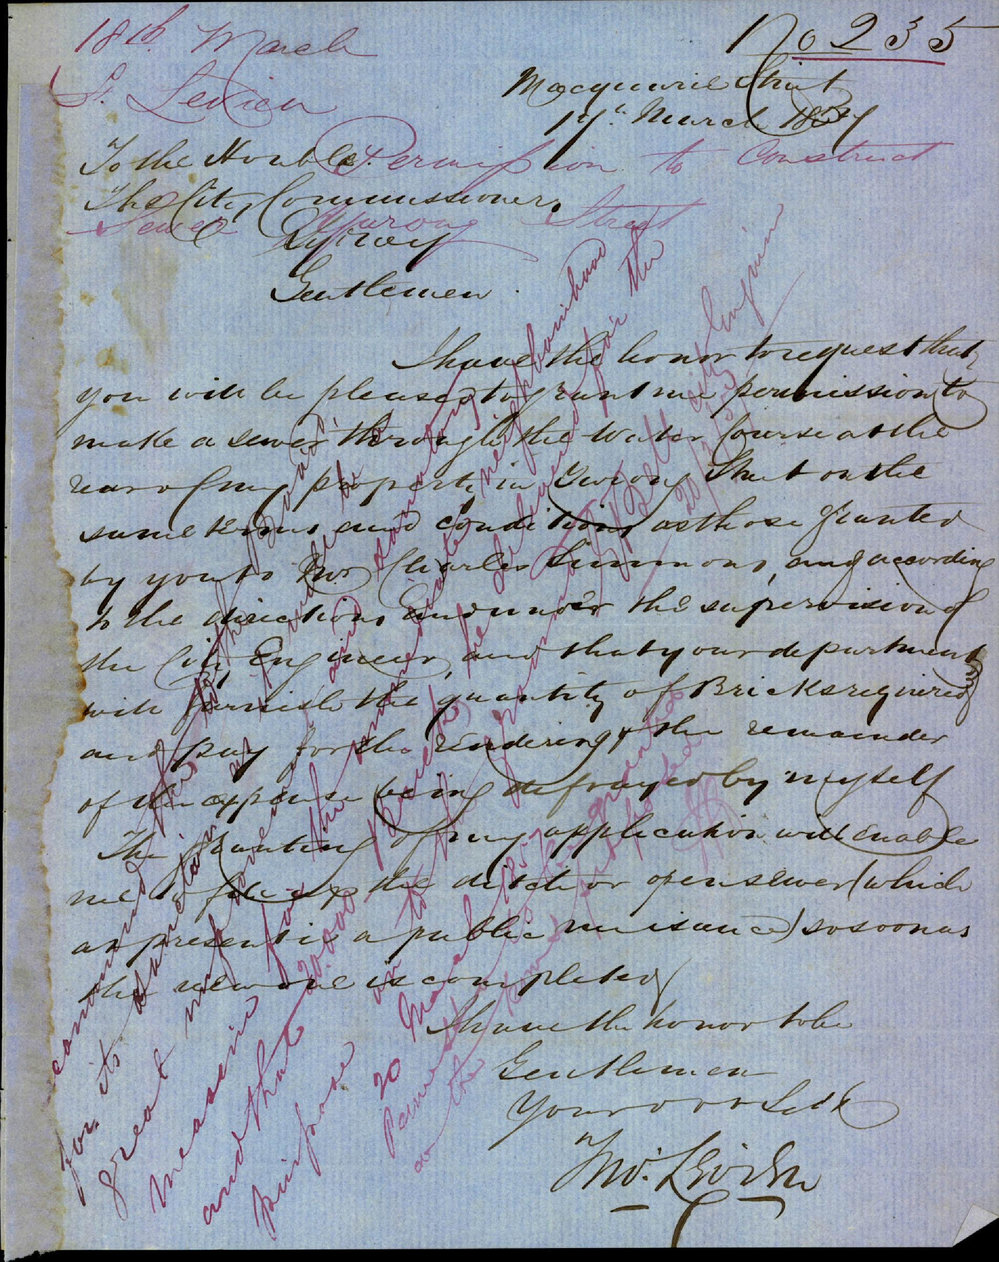 No 235
18th March
L. Levien
Macquarie Street
17th March 1857
To the Honble
The City Commissioners
Sydney
Permission to Construct
Sewer Yurong Street
Gentlemen
I have the honor to request that
you will be pleased to grant me permission to
make a sewer through the Water Course at the
rear of my property in Yurong Street on the
same terms and conditions as those granted
by you to Mr Charles Simmons, and according
to the directions and under the supervision of
the City Engineer, and that your department
will furnish the quantity of Bricks required
and pay for the rendering & the remainder
of the expense being defrayed by myself
The Granting of my application will enable
me to fill up the ditch or open sewer (which
at present is a public nuisance) so soon as
the new one is completed
I have the honor to be
Gentlemen
Your obt Servt
Jno. Levien
recommend this to the Board
for its sanction as it will be a
great improvement and sanatory
measure for the immediate neighbourhood
and that 20.000 Bricks be delivered for the
purpose
20 March 1857
City Engineer
20/3/57
permission granted